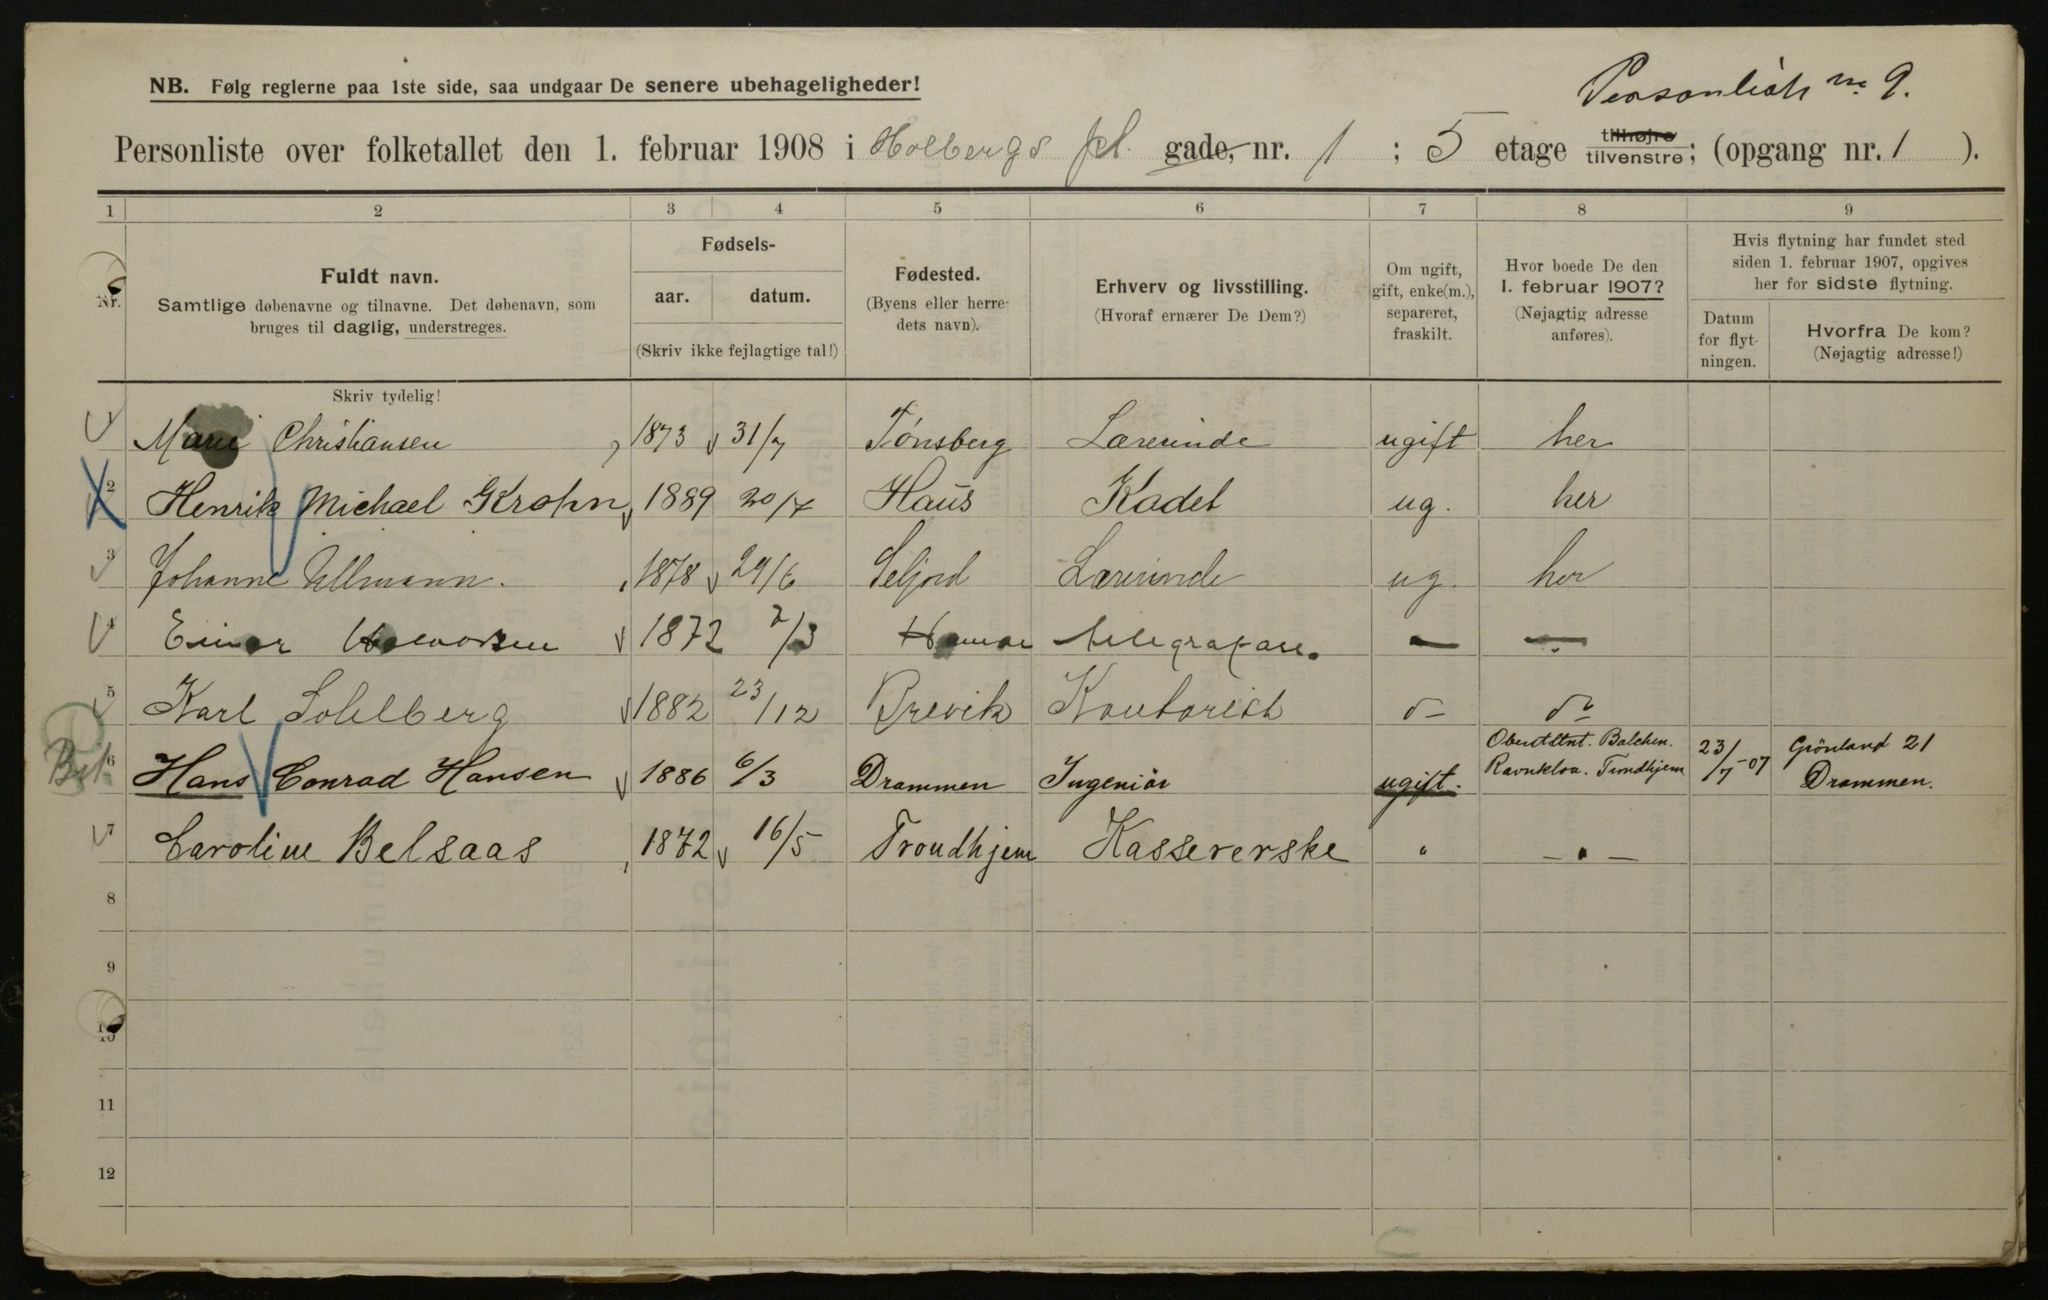 Personliste nr. 9.
NB. Følg reglerne paa 1ste side, saa undgaar De senere ubehageligheder!
Personliste over folketallet den 1. februar 1908 i Holbergs pl. gade, nr. 1 ; 5 etage tilhøjre tilvenstre; (opgang nr. 1 ).
1 2 3 4 5 6 7 8 9
Nr.
Fuldt navn.
Samtlige døbenavne og tilnavne. Det døbenavn, som
bruges til daglig, understreges.
Fødsels-
aar. datum.
(Skriv ikke fejlagtige tal!)
Fødested.
(Byens eller herre-
dets navn).
Erhverv og livsstilling.
(Hvoraf ernærer De Dem?)
Om ugift,
gift, enke(m.),
separeret,
fraskilt.
Hvor boede De den
1. februar 1907?
(Nøjagtig adresse
anføres).
Hvis flytning har fundet sted
siden 1. februar 1907, opgives
her for sidste flytning.
Datum
for flyt-
ningen.
Hvorfra De kom?
(Nøjagtig adresse!)
Skriv tydelig!
1 Marie Christiansen 1873 31/7 Tønsberg Lærerinde ugift her
2 Henrik Michael Krohn 1889 20/7 Haus Kadet ug. her
3 Johanne Ullmann. 1878 29/6 Seljord Lærerinde ug. her
4 Einar 1872 2/3 Hamar —
5 Karl Sohlberg 1882 23/12 Brevik Kontorist
6 Hans Conrad Hansen 1886 6/3 Drammen Ingeniør ugift. Oberstltnt. Balchen. Ravnkloa. Trondhjem 23/7-07 Grönland 21 Drammen.
7 Caroline Belsaas 1872 16/5 Trondhjem Kassererske " — " —
8
9
10
11
12